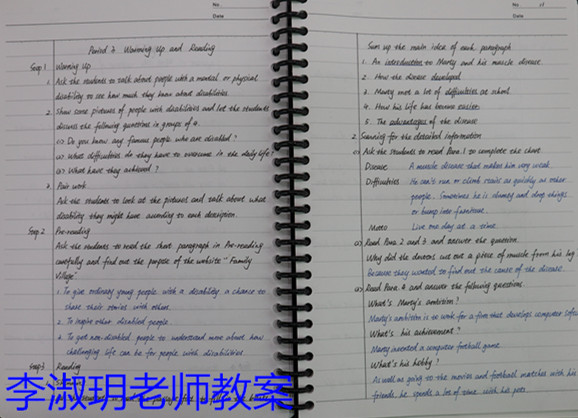 No.
Date
Period 1 Warming Up and Reading
Step 1 Warming Up
1. Ask the students to talk about people with a mental or physical
disability to see how much they know about disabilities.
2. Show some pictures of people with disabilities and let the students
discuss the following questions in groups of 4.
(1) Do you know any famous people who are disabled?
(2) What difficulties do they have to overcome in the daily life?
(3) What have they achieved?
3. Pair work
Ask the students to look at the pictures and talk about what
disability they might have according to each description.
Step 2 Pre-reading
Ask the students to read the short paragraph in Pre-reading
carefully and find out the purpose of the website "Family
Village"
1. To give ordinary young people with a disability a chance to
share their stories with others.
2. To inspire other disabled people.
3. To get non-disabled people to understand more about how
challenging life can be for people with disabilities.
Step 3 Reading
李淑玥老师教案
No. of
Date
Sum up the main idea of each paragraph
1. An introduction to Marty and his muscle disease
2. How the disease developed
3. Marty met a lot of difficulties at school
4. How his life has become easier
5. The advantages of the disease
2. Scanning for the detailed information
(1) Ask the students to read Para. 1 to complete the chart.
Disease A muscle disease that makes him very weak.
Difficulties He can't run or climb stairs as quickly as other
people. Sometimes he is clumsy and drop things
or bump into furniture.
Motto Live one day at a time.
(2) Read Para. 2 and 3 and answer the question.
Why did the doctors cut out a piece of muscle from his leg
Because they wanted to find out the cause of the disease.
(3) Read Para. 4 and answer the following questions
What's Marty's ambition?
Marty's ambition is to work for a firm that develops computer software
What's his achievement?
Marty invented a computer football game.
What's his hobby?
As well as going to the movies and football matches with his
friends, he spends a lot of time with his pets.